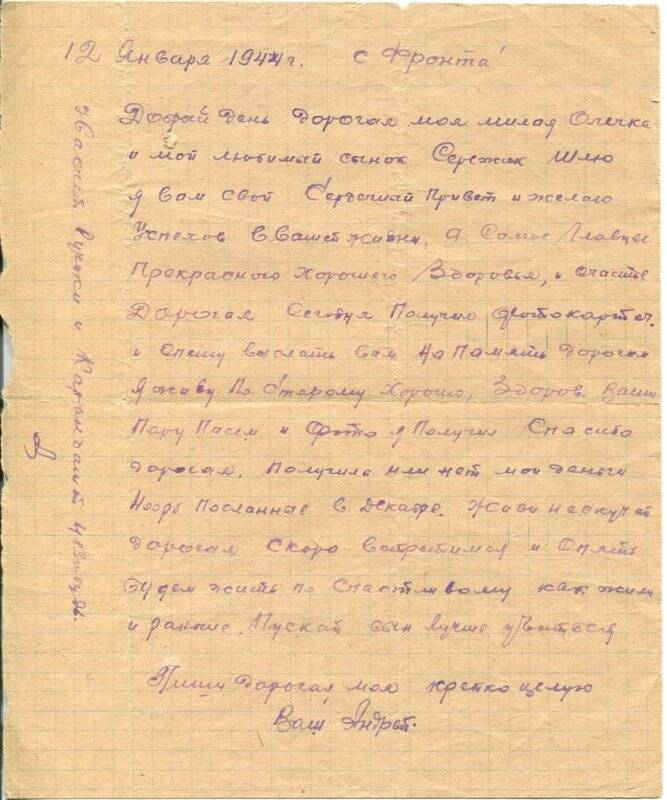 12 Января 1944 г. с Фронта
Добрый день дорогая моя милая Олечка
и мой любимый сынок Сережик Шлю
я вам свой Сердечный Привет и желаю
Успехов в вашей жизни, а Самое Главное
Прекрасного Хорошего Здоровья, и счастье
Дорогая Сегодня Получил фотокарточ.
и спешу выслать вам на Память дорогая
Я живу По Старому Хорошо, Здоров. Ваши
Пару Писем и Фото я Получил Спасибо
дорогая. Получила или нет мои деньги
посланные в Декабре. Живи нескучай
дорогая Скоро встретимся и Опять
будем жить по счастливому как жили
и раньше. Пускай сын лучше учиться
Пиши дорогая моя крепко целую
Ваш Андрей.
Ручки и Карандашей